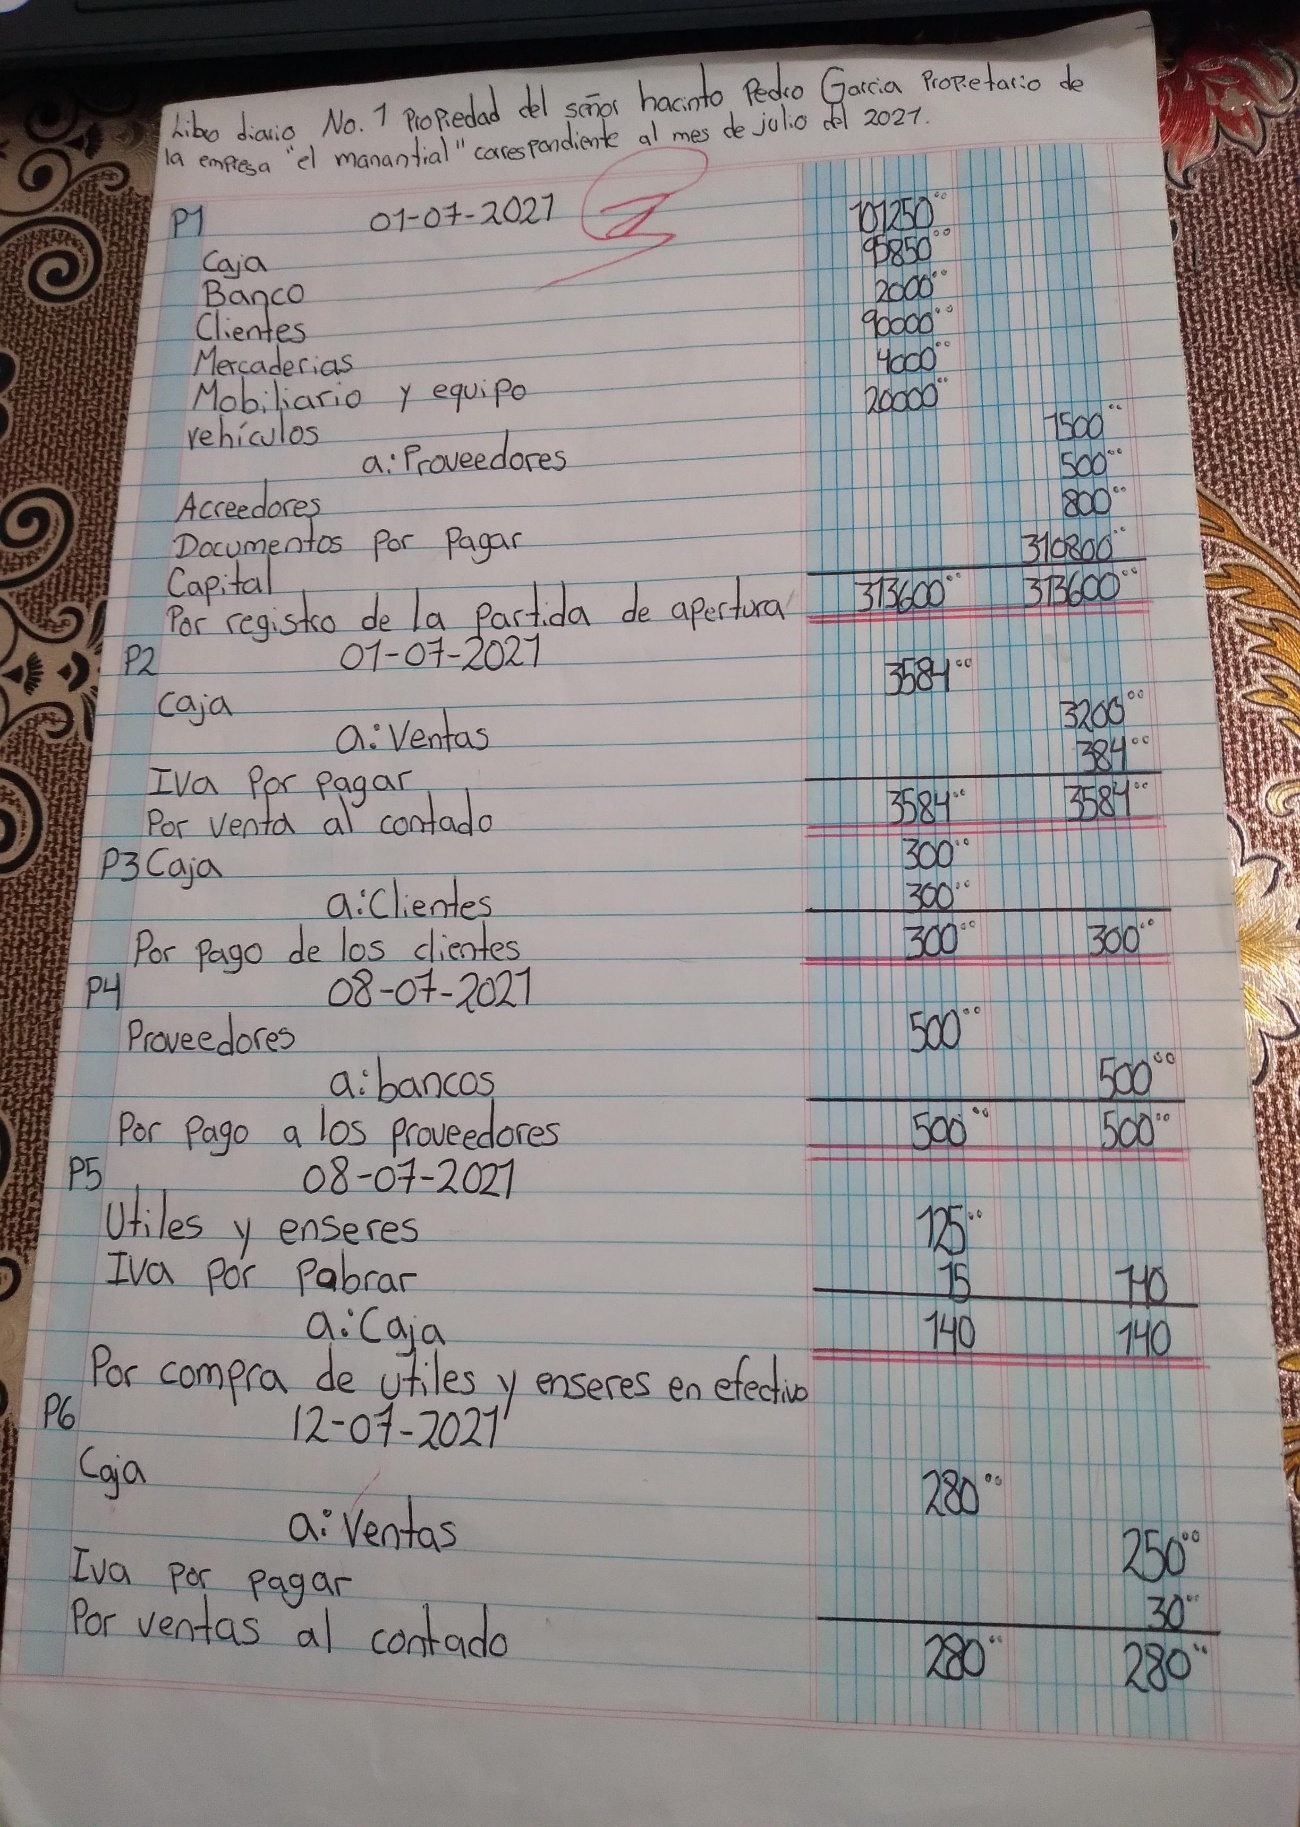 Libro diario No. 1 Propiedad del señor hacinto Pedro Garcia Propietario de
la empresa "el manantial" correspondiente al mes de julio del 2021.
P1 01-07-2021 101250.00
Caja 95850.00
Banco 2000.00
Clientes 90000.00
Mercaderias 4000.00
Mobiliario y equipo 20000.00
vehículos 1500.00
a: Proveedores 500.00
Acreedores 800.00
Documentos Por Pagar 310800.00
Capital 313600.00 313600.00
Por registro de la Partida de apertura
P2 01-07-2021 3584.00
Caja 3200.00
a: Ventas 384.00
Iva Por pagar 3584.00 3584.00
Por venta al contado
P3 Caja 300.00
a: Clientes 300.00
Por Pago de los clientes 300.00 300.00
P4 08-07-2021
Proveedores 500.00
a: bancos 500.00
Por Pago a los Proveedores 500.00 500.00
P5 08-07-2021
Utiles y enseres 125.00
Iva por Pabrar 15 140
a: Caja 140 140
Por compra de utiles y enseres en efectivo
P6 12-07-2021
Caja 280.00
a: Ventas 250.00
Iva Por pagar 30.00
Por ventas al contado 280.00 280.00